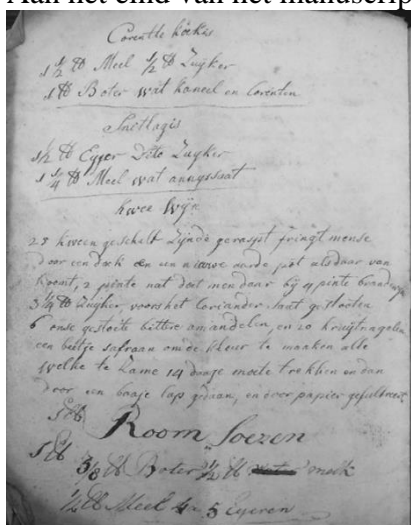 Aan het eind van het manuscrip
Corentte koekes
1 1/2 ℔ Meel 1/2 ℔ Zuijker
1 ℔ Boter wat kaneel en Corenten
1/2 ℔ Eyer Dito Zuyker
1 1/4 ℔ Meel wat annyssaat
kwee Wyn
23 kween geschelt Zijnde geraspt fringt mense
door een doek en een nieuwe aarde pot als daar van
koomt, 2 pinte nat doet men daar bij 4 pinte brandewyn
3 1/4 ℔ Zuijker, voorts het Coriander Saat gestooten
6 onse gestoote bittere amandelen, en 20 kruijtnagelen
een beetje safraan om de kleur te maaken alle
welke te Zame 14 daage moete trekken en dan
door een baaje lap gedaan, en over papier gefiltreert
Room Soezen
3/8 ℔ Boter 1/2 ℔ melk
1/2 ℔ Meel 4 a 5 Eyeren